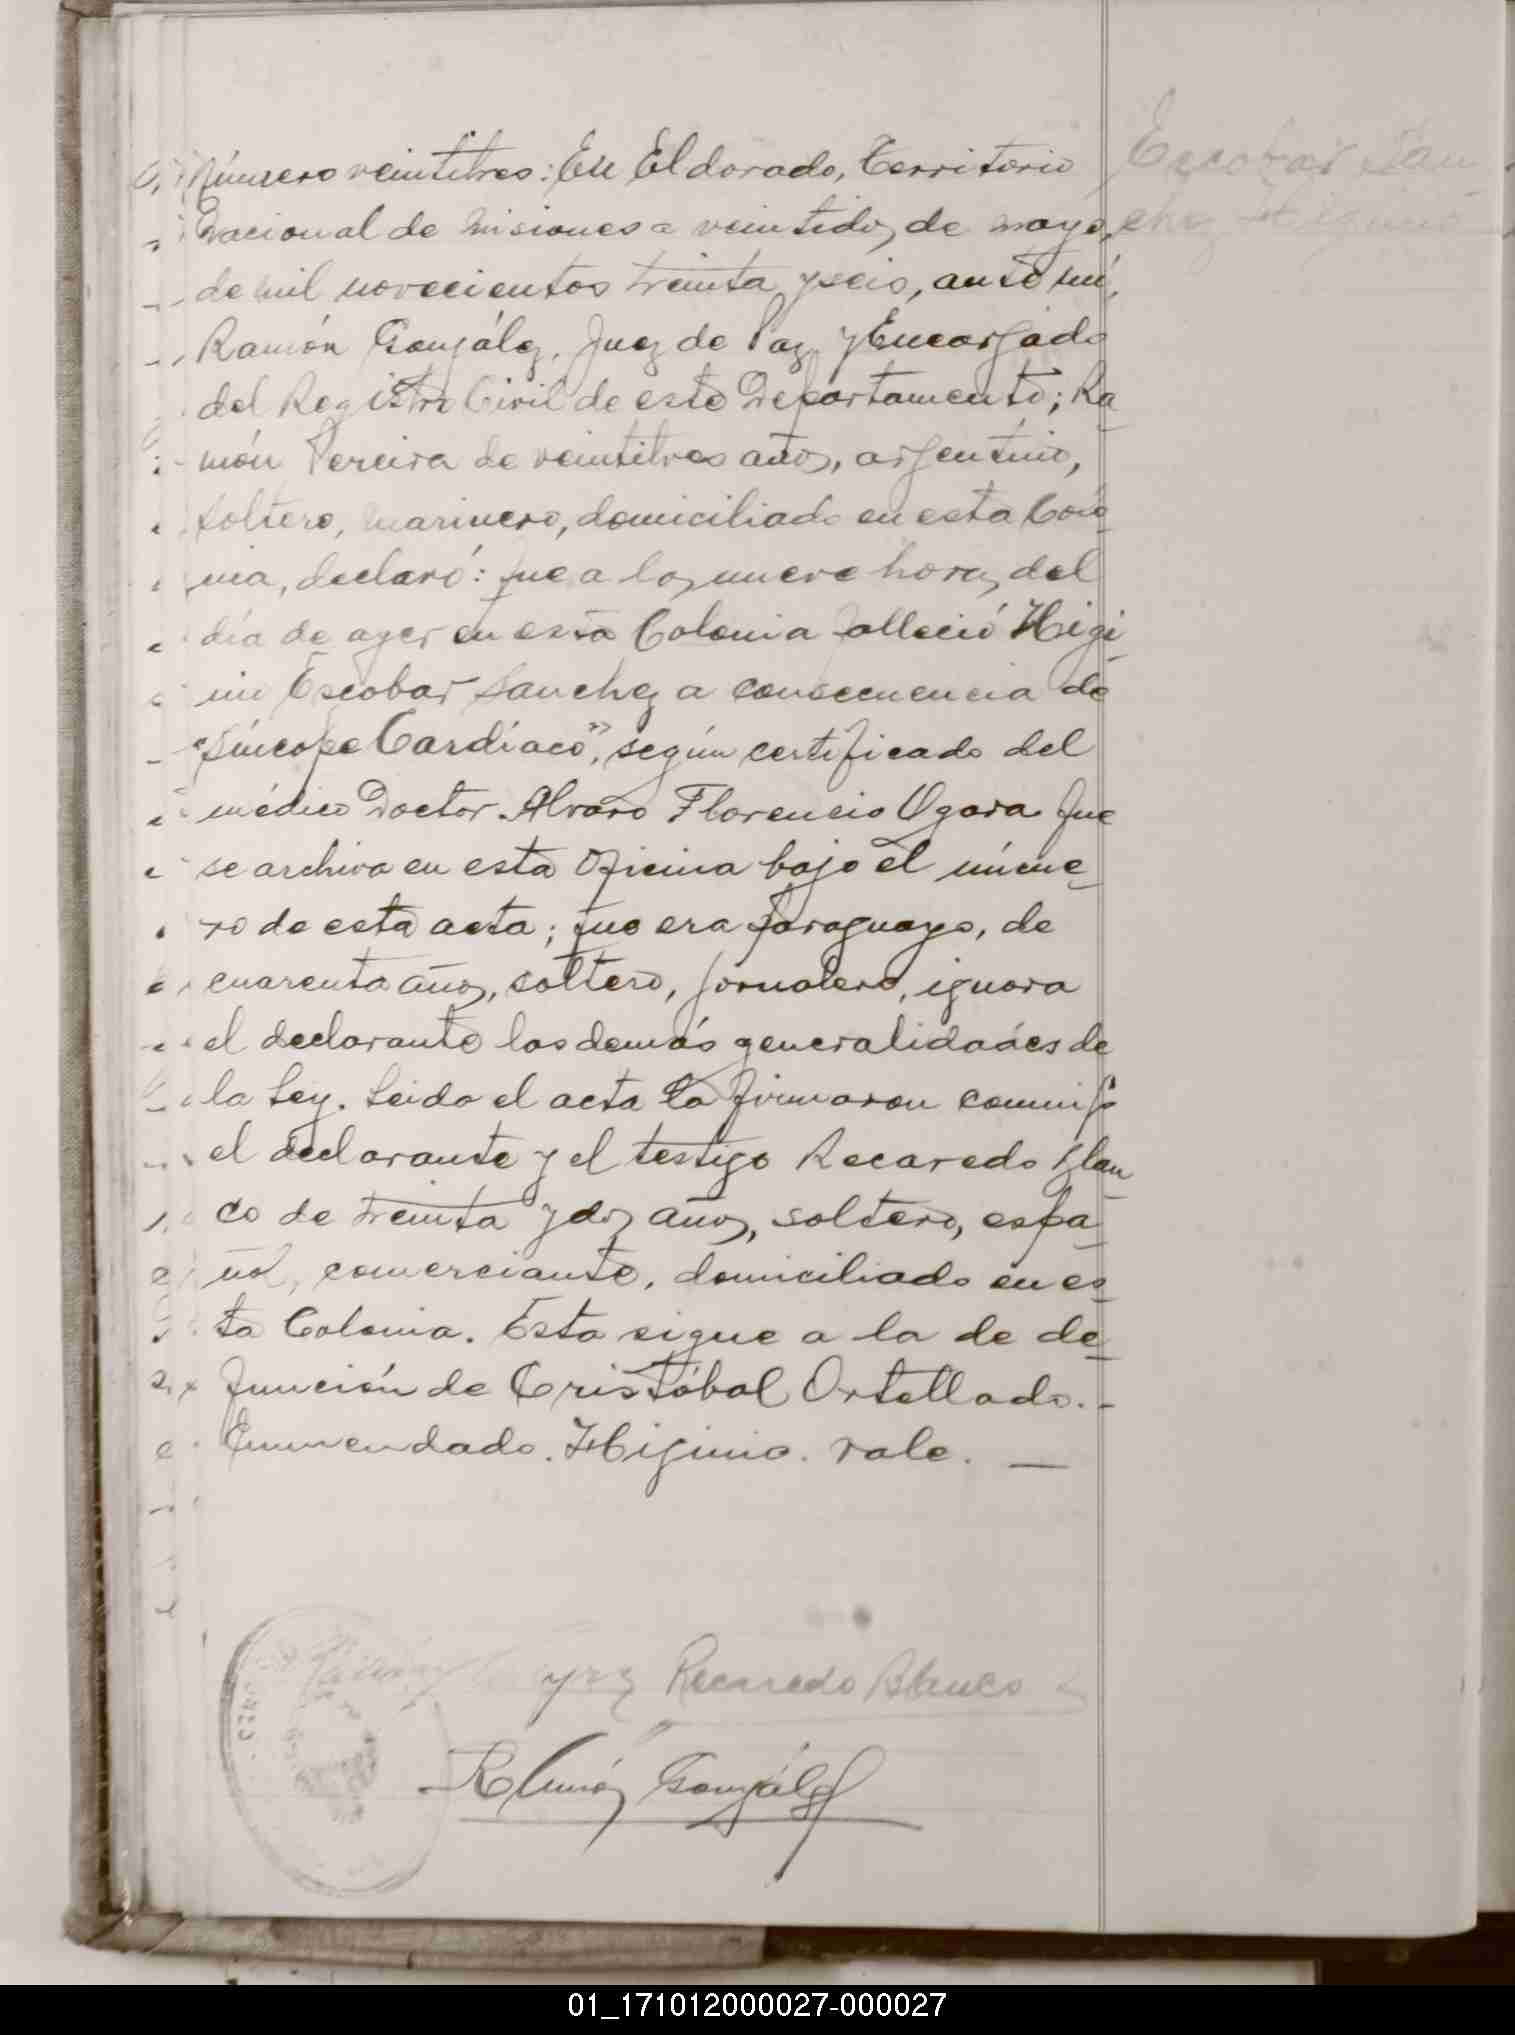 Número veintitres: En Eldorado, Territorio
Nacional de Misiones a veintidos de mayo,
de mil novecientos treinta y seis, ante mí,
Ramón González, Juez de Paz y Encargado
del Registro Civil de este Departamento; Ra
món Pereira de veintitres años, argentino,
soltero, marinero, domiciliado en esta Colo
nia, declaró: que a las nueve horas del
día de ayer en esta Colonia falleció Higi
nio Escobar Sanchez a consecuencia de
"Síncope Cardíaco", según certificado del
médico Doctor Alvaro Florencio Ogara que
se archiva en esta Oficina bajo el núme
ro de esta acta; que era paraguayo, de
cuarenta años, soltero, jornalero, ignora
el declarante las demás generalidades de
la Ley. Leida el acta la firmaron conmigo
el declarante y el testigo Recaredo Blan
co de treinta y dos años, soltero, espa
ñol, comerciante, domiciliado en es
ta Colonia. Esta sigue a la de de
función de Cristóbal Ortellado.-
Enmendado. Higinio. vale. —
Escobar San
chez Higinio
Recaredo Blanco
Ramón González
01_171012000027-000027